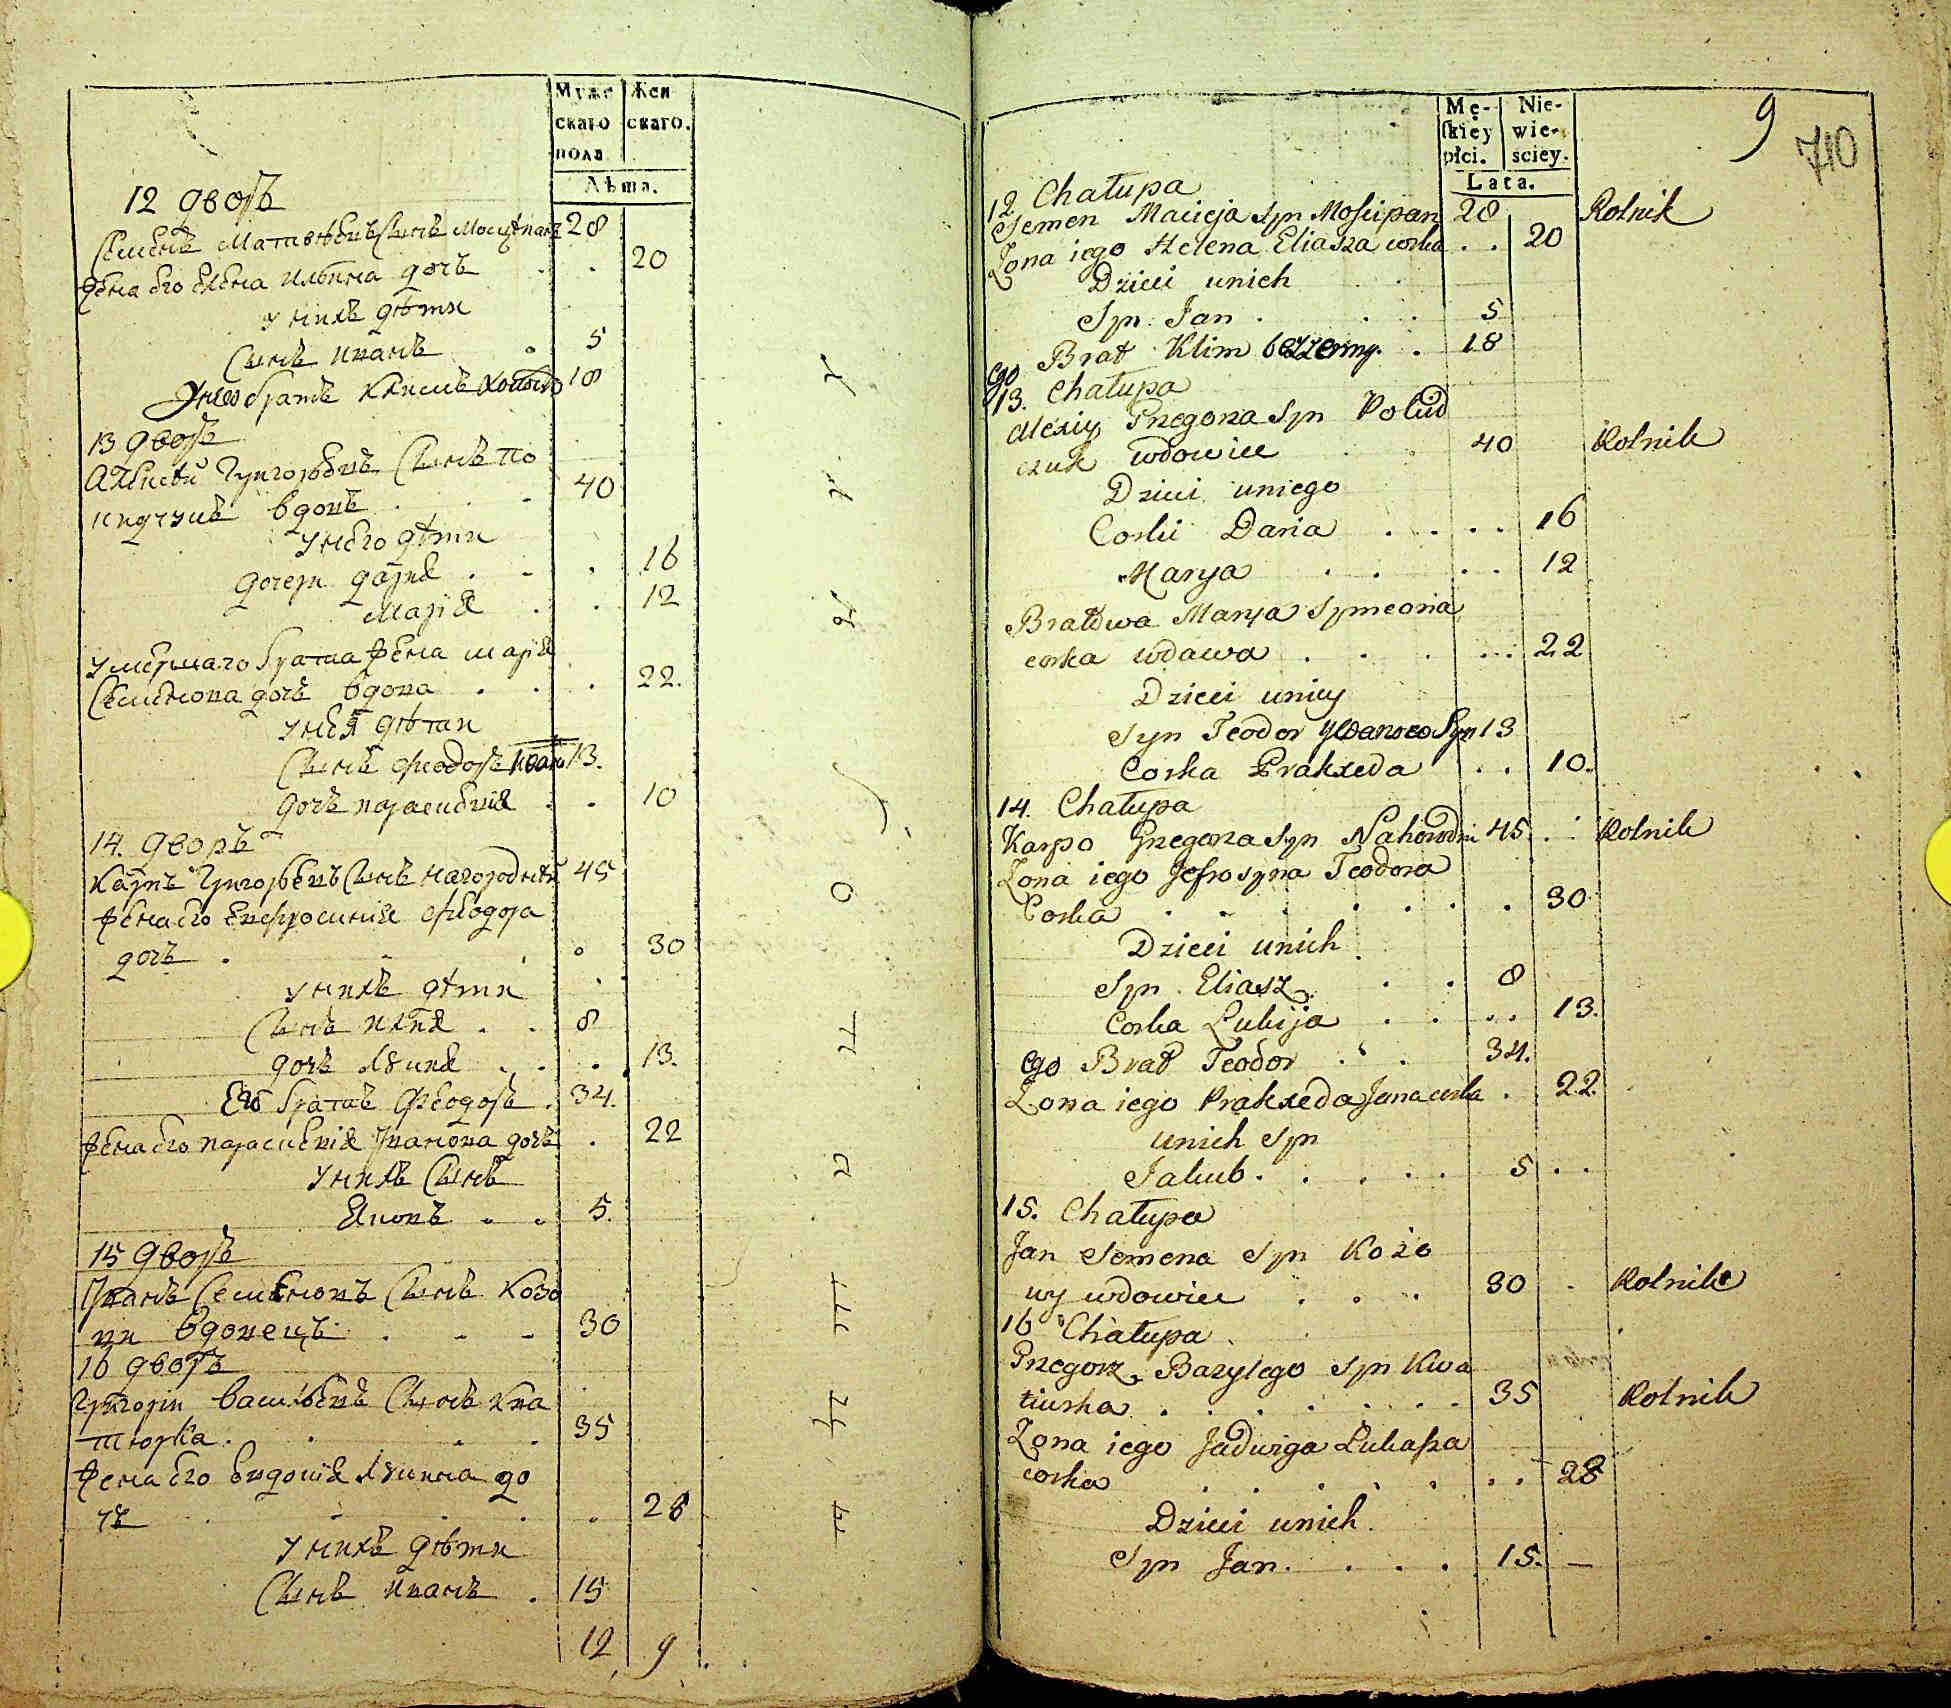 Муже
скаго
пола
Жен
скаго.
Лѣта.
12 дворъ
Семенъ Матвѣевъ Сынъ 28
Жена его Елена Ильина дочь . . 20
У нихъ дѣти
Сынъ Иванъ . 5
братъ Климъ 18
13 дворъ
Алексѣй Григорьевъ Сынъ По
вдовъ . . 40
У него дѣти
Дочери Дарія . . . 16
Марія . . 12
Умершаго брата жена Марія
Семенова дочь вдова . . . 22.
У нея дѣтьи
Сынъ Феодоръ 13.
дочь Парасковія . . 10
14. Дворъ
Карпъ Григорьевъ Сынъ Нагородній 45
Жена его Евфросинія Феодора
дочь . . . 30
У нихъ дѣти
Сынъ Илія . . 8
дочь Лукія . . . 13.
Его братъ Феодоръ . 34.
Жена его Парасковія Иванова дочь . 22
У нихъ Сынъ
Яковъ . . 5.
15 Дворъ
Иванъ Семеновъ Сынъ Козо
вдовецъ . . . 30
16 дворъ
Григорій Васильевъ Сынъ Ква
тюрка . . . . 35
Жена его Лукина до
чь . . . . 28
У нихъ Дѣти
Сынъ Иванъ . 15
12 9
9
710
Mę-
skiey
płci.
Nie-
wie-
sciey.
Lata.
12. Chałupa
Semen Macieja Syn Moscipan 28 Rolnik
Zona iego Helena Eliasza corka . . 20
Dzieci unich
Syn Jan . . . 5
Ego Brat Klim bezzenny. . 18
13. Chałupa
Alexiy Grzegorza Syn Polud
czuk wdowiec . . 40 Rolnik
Dzieci uniego
Corki Daria . . . . 16
Marya . . . . 12
Bratowa Marya Symeona
corka wdawa . . . . . . 22
Dzieci uniey
Syn Teodor Syn 13
Corka Prakseda . . 10.
14. Chałupa
Karpo Grzegorza Syn 45. . Rolnik
Zona iego Jefrosyna Teodora
Corka . . . . . . . 30
Dzieci unich
Syn Eliasz . . . 8
Corka Lukija . . . . 13.
Ego Brat Teodor . . . 34.
Zona iego Prakseda Jana corka . 22.
unich Syn
Jakub . . . . . 5 . .
15. Chałupa
Jan Semena Syn Kozo
wy wdowiec . . . 30 . Rolnik
16 Chałupa
Grzegorz Bazylego Syn Kwa
tiurka . . . . . . . 35 Rolnik
Zona iego Jadwiga Łukasza
corka . . . . . . . 28
Dzieci unich
Syn Jan . . . . 15. —